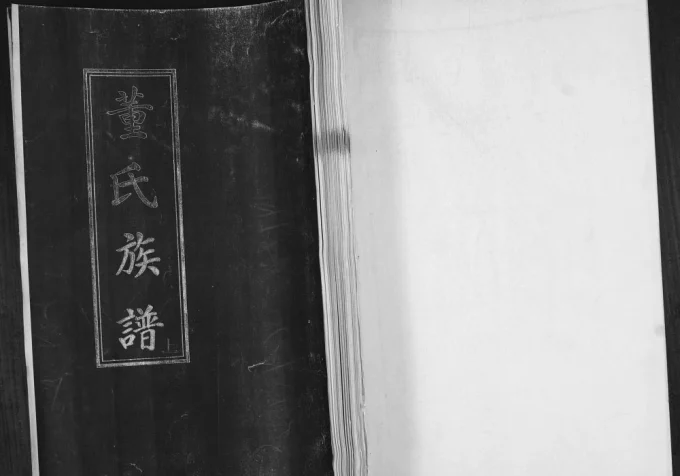 董氏族譜